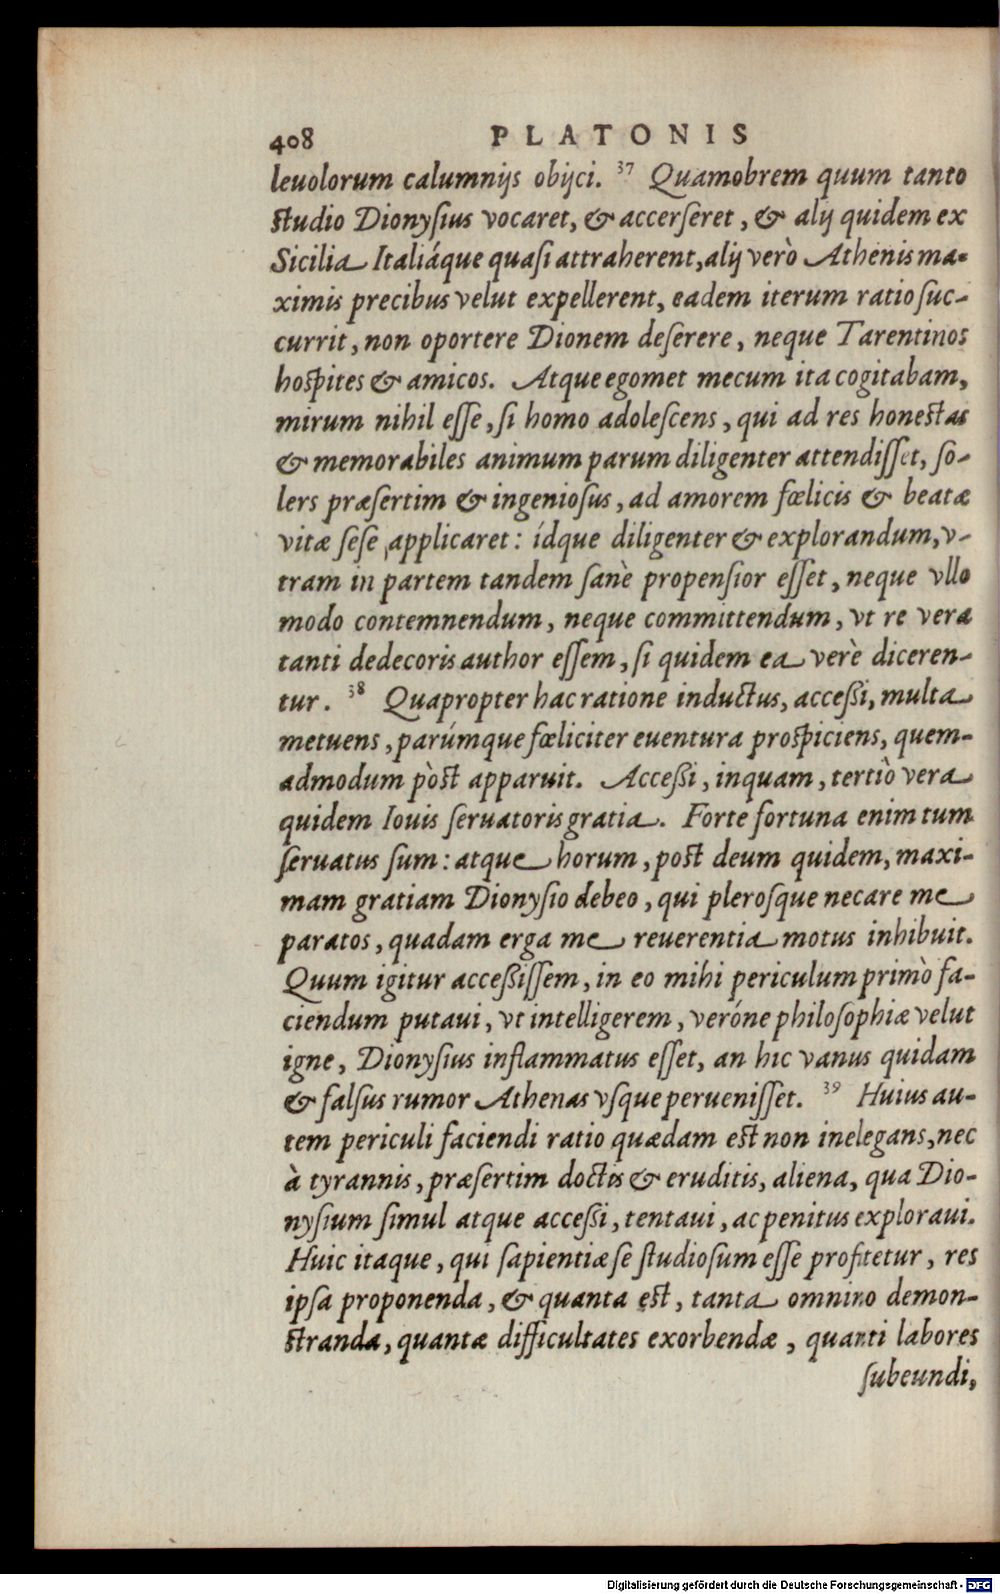 408 PLATONIS
leuolorum calumnijs obijci. 37 Quamobrem quum tanto
studio Dionysius vocaret, & accerseret, & alij quidem ex
Sicilia Italiáque quasi attraherent, alij verò Athenis ma-
ximis precibus velut expellerent, eadem iterum ratio suc-
currit, non oportere Dionem deserere, neque Tarentinos
hospites & amicos. Atque egomet mecum ita cogitabam,
mirum nihil esse, si homo adolescens, qui ad res honestas
& memorabiles animum parum diligenter attendisset, so-
lers præsertim & ingeniosus, ad amorem fœlicis & beatæ
vitæ sese applicaret: ídque diligenter & explorandum, v-
tram in partem tandem sanè propensior esset, neque vllo
modo contemnendum, neque committendum, vt re vera
tanti dedecoris author essem, si quidem ea verè diceren-
tur. 38 Quapropter hac ratione inductus, accessi, multa
metuens, parúmque fœliciter euentura prospiciens, quem-
admodum pòst apparuit. Accessi, inquam, tertiò vera
quidem Iouis seruatoris gratia. Forte fortuna enim tum
seruatus sum: atque horum, post deum quidem, maxi-
mam gratiam Dionysio debeo, qui plerosque necare me
paratos, quadam erga me reuerentia motus inhibuit.
Quum igitur accessissem, in eo mihi periculum primò fa-
ciendum putaui, vt intelligerem, veróne philosophiæ velut
igne, Dionysius inflammatus esset, an hic vanus quidam
& falsus rumor Athenas vsque peruenisset. 39 Huius au-
tem periculi faciendi ratio quædam est non inelegans, nec
à tyrannis, præsertim doctis & eruditis, aliena, qua Dio-
nysium simul atque accessi, tentaui, ac penitus exploraui.
Huic itaque, qui sapientiæ se studiosum esse profitetur, res
ipsa proponenda, & quanta est, tanta omnino demon-
stranda, quantæ difficultates exorbendæ, quanti labores
subeundi,
Digitalisierung gefördert durch die Deutsche Forschungsgemeinschaft - DFG